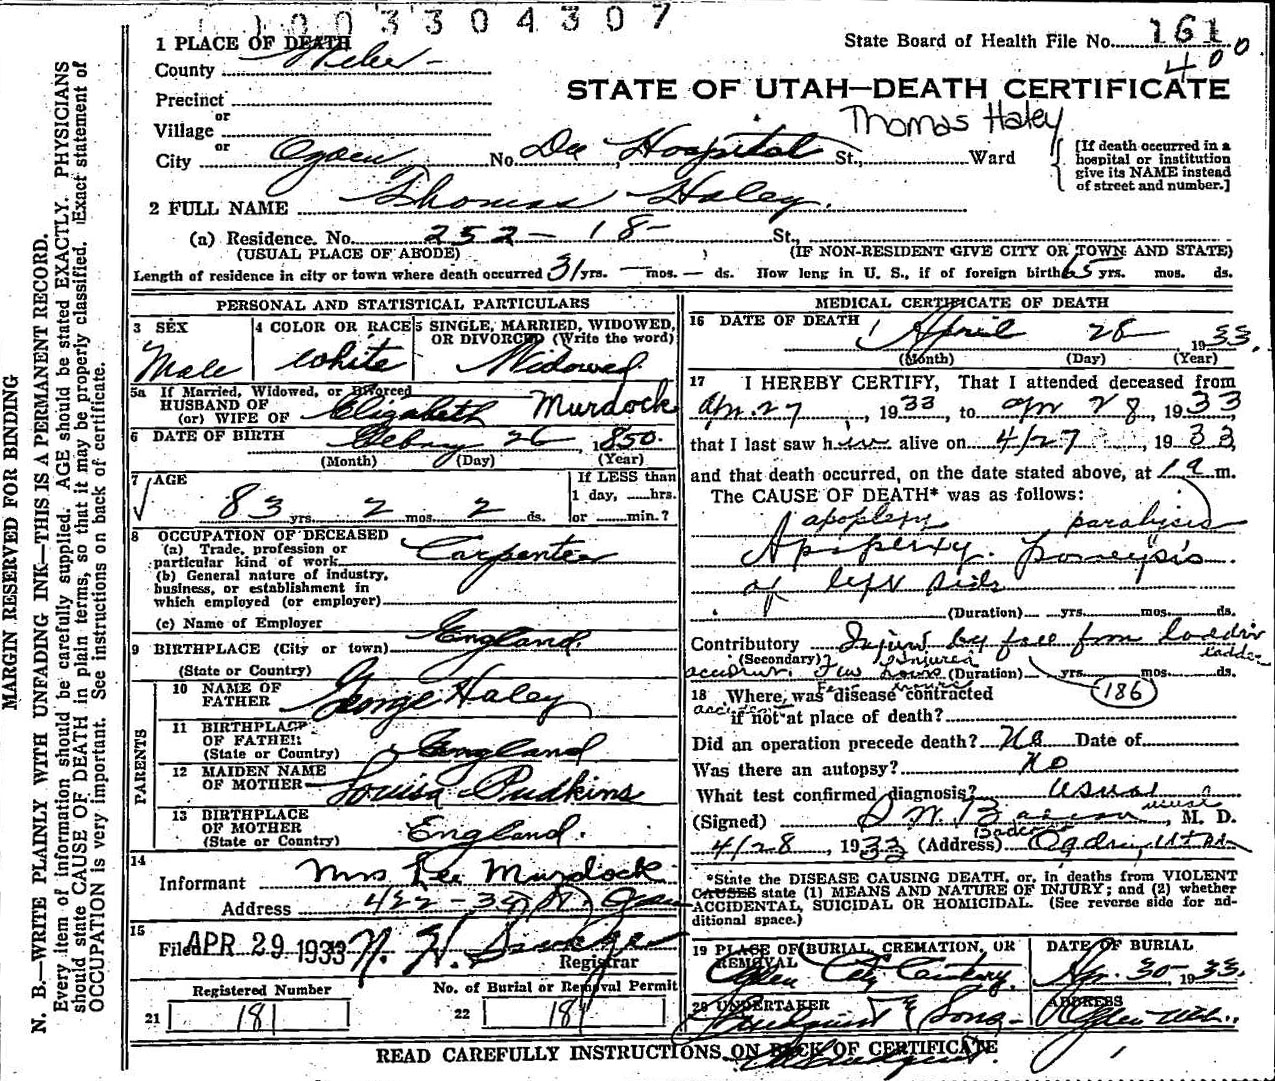 1003304307
State Board of Health File No. 161
400
1 PLACE OF DEATH
County Weber
STATE OF UTAH—DEATH CERTIFICATE
Precinct
or
Village
Thomas Haley
or
City Ogden No. Dee Hospital St., Ward
[If death occurred in a hospital or institution give its NAME instead of street and number.]
2 FULL NAME Thomas Haley.
(a) Residence. No. 252 - 18 - St.,
(USUAL PLACE OF ABODE) (IF NON-RESIDENT GIVE CITY OR TOWN AND STATE)
Length of residence in city or town where death occurred 31 yrs. — mos. — ds. How long in U. S., if of foreign birth 65 yrs. mos. ds.
PERSONAL AND STATISTICAL PARTICULARS
3 SEX
Male
4 COLOR OR RACE
White
5 SINGLE, MARRIED, WIDOWED, OR DIVORCED (Write the word)
Widowed
5a If Married, Widowed, or Divorced
HUSBAND OF
(or) WIFE OF Elizabeth Murdock
6 DATE OF BIRTH 26 1850.
(Month) (Day) (Year)
7 AGE
83 yrs. 2 mos. 2 ds.
If LESS than
1 day, ___hrs.
or ___min.?
8 OCCUPATION OF DECEASED
(a) Trade, profession or
particular kind of work Carpenter
(b) General nature of industry,
business, or establishment in
which employed (or employer)
(c) Name of Employer
9 BIRTHPLACE (City or town) England.
(State or Country)
PARENTS
10 NAME OF FATHER George Haley
11 BIRTHPLACE OF FATHER
(State or Country) England
12 MAIDEN NAME OF MOTHER Louisa Pudkins
13 BIRTHPLACE OF MOTHER
(State or Country) England.
14
Informant Mrs Lee Murdock
Address 422 -
15
Filed APR 29 1933
Registrar
Registered Number
21 181
No. of Burial or Removal Permit
22 181
MEDICAL CERTIFICATE OF DEATH
16 DATE OF DEATH April 28 1933.
(Month) (Day) (Year)
17 I HEREBY CERTIFY, That I attended deceased from
Apr. 27, 1933, to Apr 28, 1933
that I last saw him alive on 4/27, 1933
and that death occurred, on the date stated above, at 1 a m.
The CAUSE OF DEATH* was as follows:
apoplexy paralysis
of left side
(Duration) yrs. mos. ds.
Contributory by from
(Secondary) Injured ladder
(Duration) yrs. mos. ds.
186
18 Where was disease contracted
accident
if not at place of death?
Did an operation precede death? No Date of
Was there an autopsy? No
What test confirmed diagnosis? usual
(Signed) M. D.
4/28, 1933 (Address)
*State the DISEASE CAUSING DEATH, or, in deaths from VIOLENT
CAUSES state (1) MEANS AND NATURE OF INJURY; and (2) whether
ACCIDENTAL, SUICIDAL OR HOMICIDAL. (See reverse side for ad-
ditional space.)
19 PLACE OF BURIAL, CREMATION, OR REMOVAL
Ogden City Cemetery.
DATE OF BURIAL
Apr. 30 - 1933.
20 UNDERTAKER
Lindquist & Sons -
ADDRESS
Ogden Utah.
READ CAREFULLY INSTRUCTIONS ON BACK OF CERTIFICATE
MARGIN RESERVED FOR BINDING
N. B.—WRITE PLAINLY WITH UNFADING INK—THIS IS A PERMANENT RECORD.
Every item of information should be carefully supplied. AGE should be stated EXACTLY. PHYSICIANS
should state CAUSE OF DEATH in plain terms, so that it may be properly classified. Exact statement of
OCCUPATION is very important. See instructions on back of certificate.